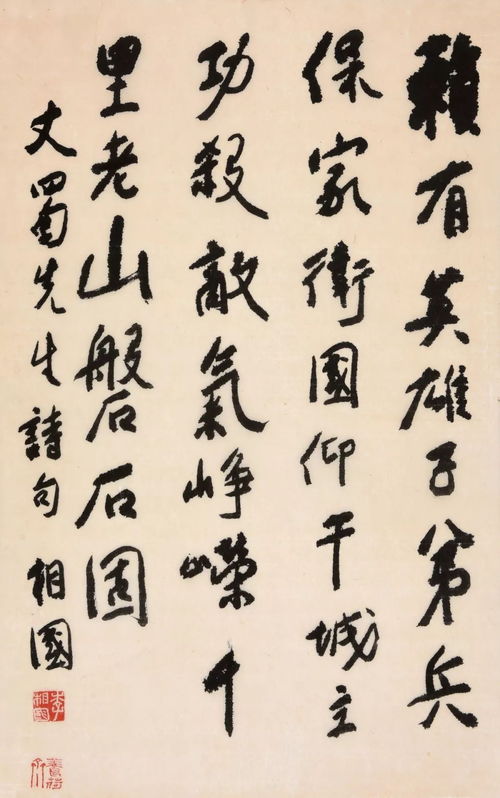 賴有英雄子弟兵
保家衛國仰干城立
功殺敵氣崢嶸千
里老山磐石固
丈蜀先生詩句 相國
李相國